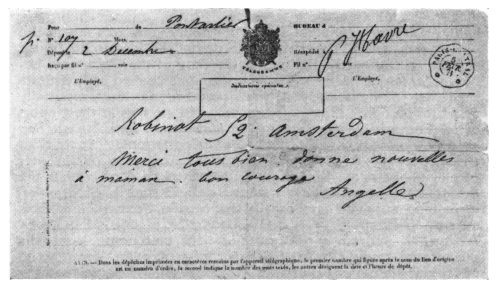 Pour de Pontarlier BUREAU d
p. N° 107 Mots. P Havre
Dépôt le 2 Décembre Réexpédié à
Reçu par fil n° voie Fil n° voie
L'Employé, L'Employé,
TÉLÉGRAMME
Indications spéciales :
Robinot 52 Amsterdam
Merci tous bien donne nouvelles
à maman. bon courage
Angelle
N. B. — Dans les dépêches imprimées en caractères romains par l'appareil télégraphique, le premier nombre qui figure après le nom du lieu d'origine
est un numéro d'ordre, le second indique le nombre des mots taxés, les autres désignent la date et l'heure de dépôt.